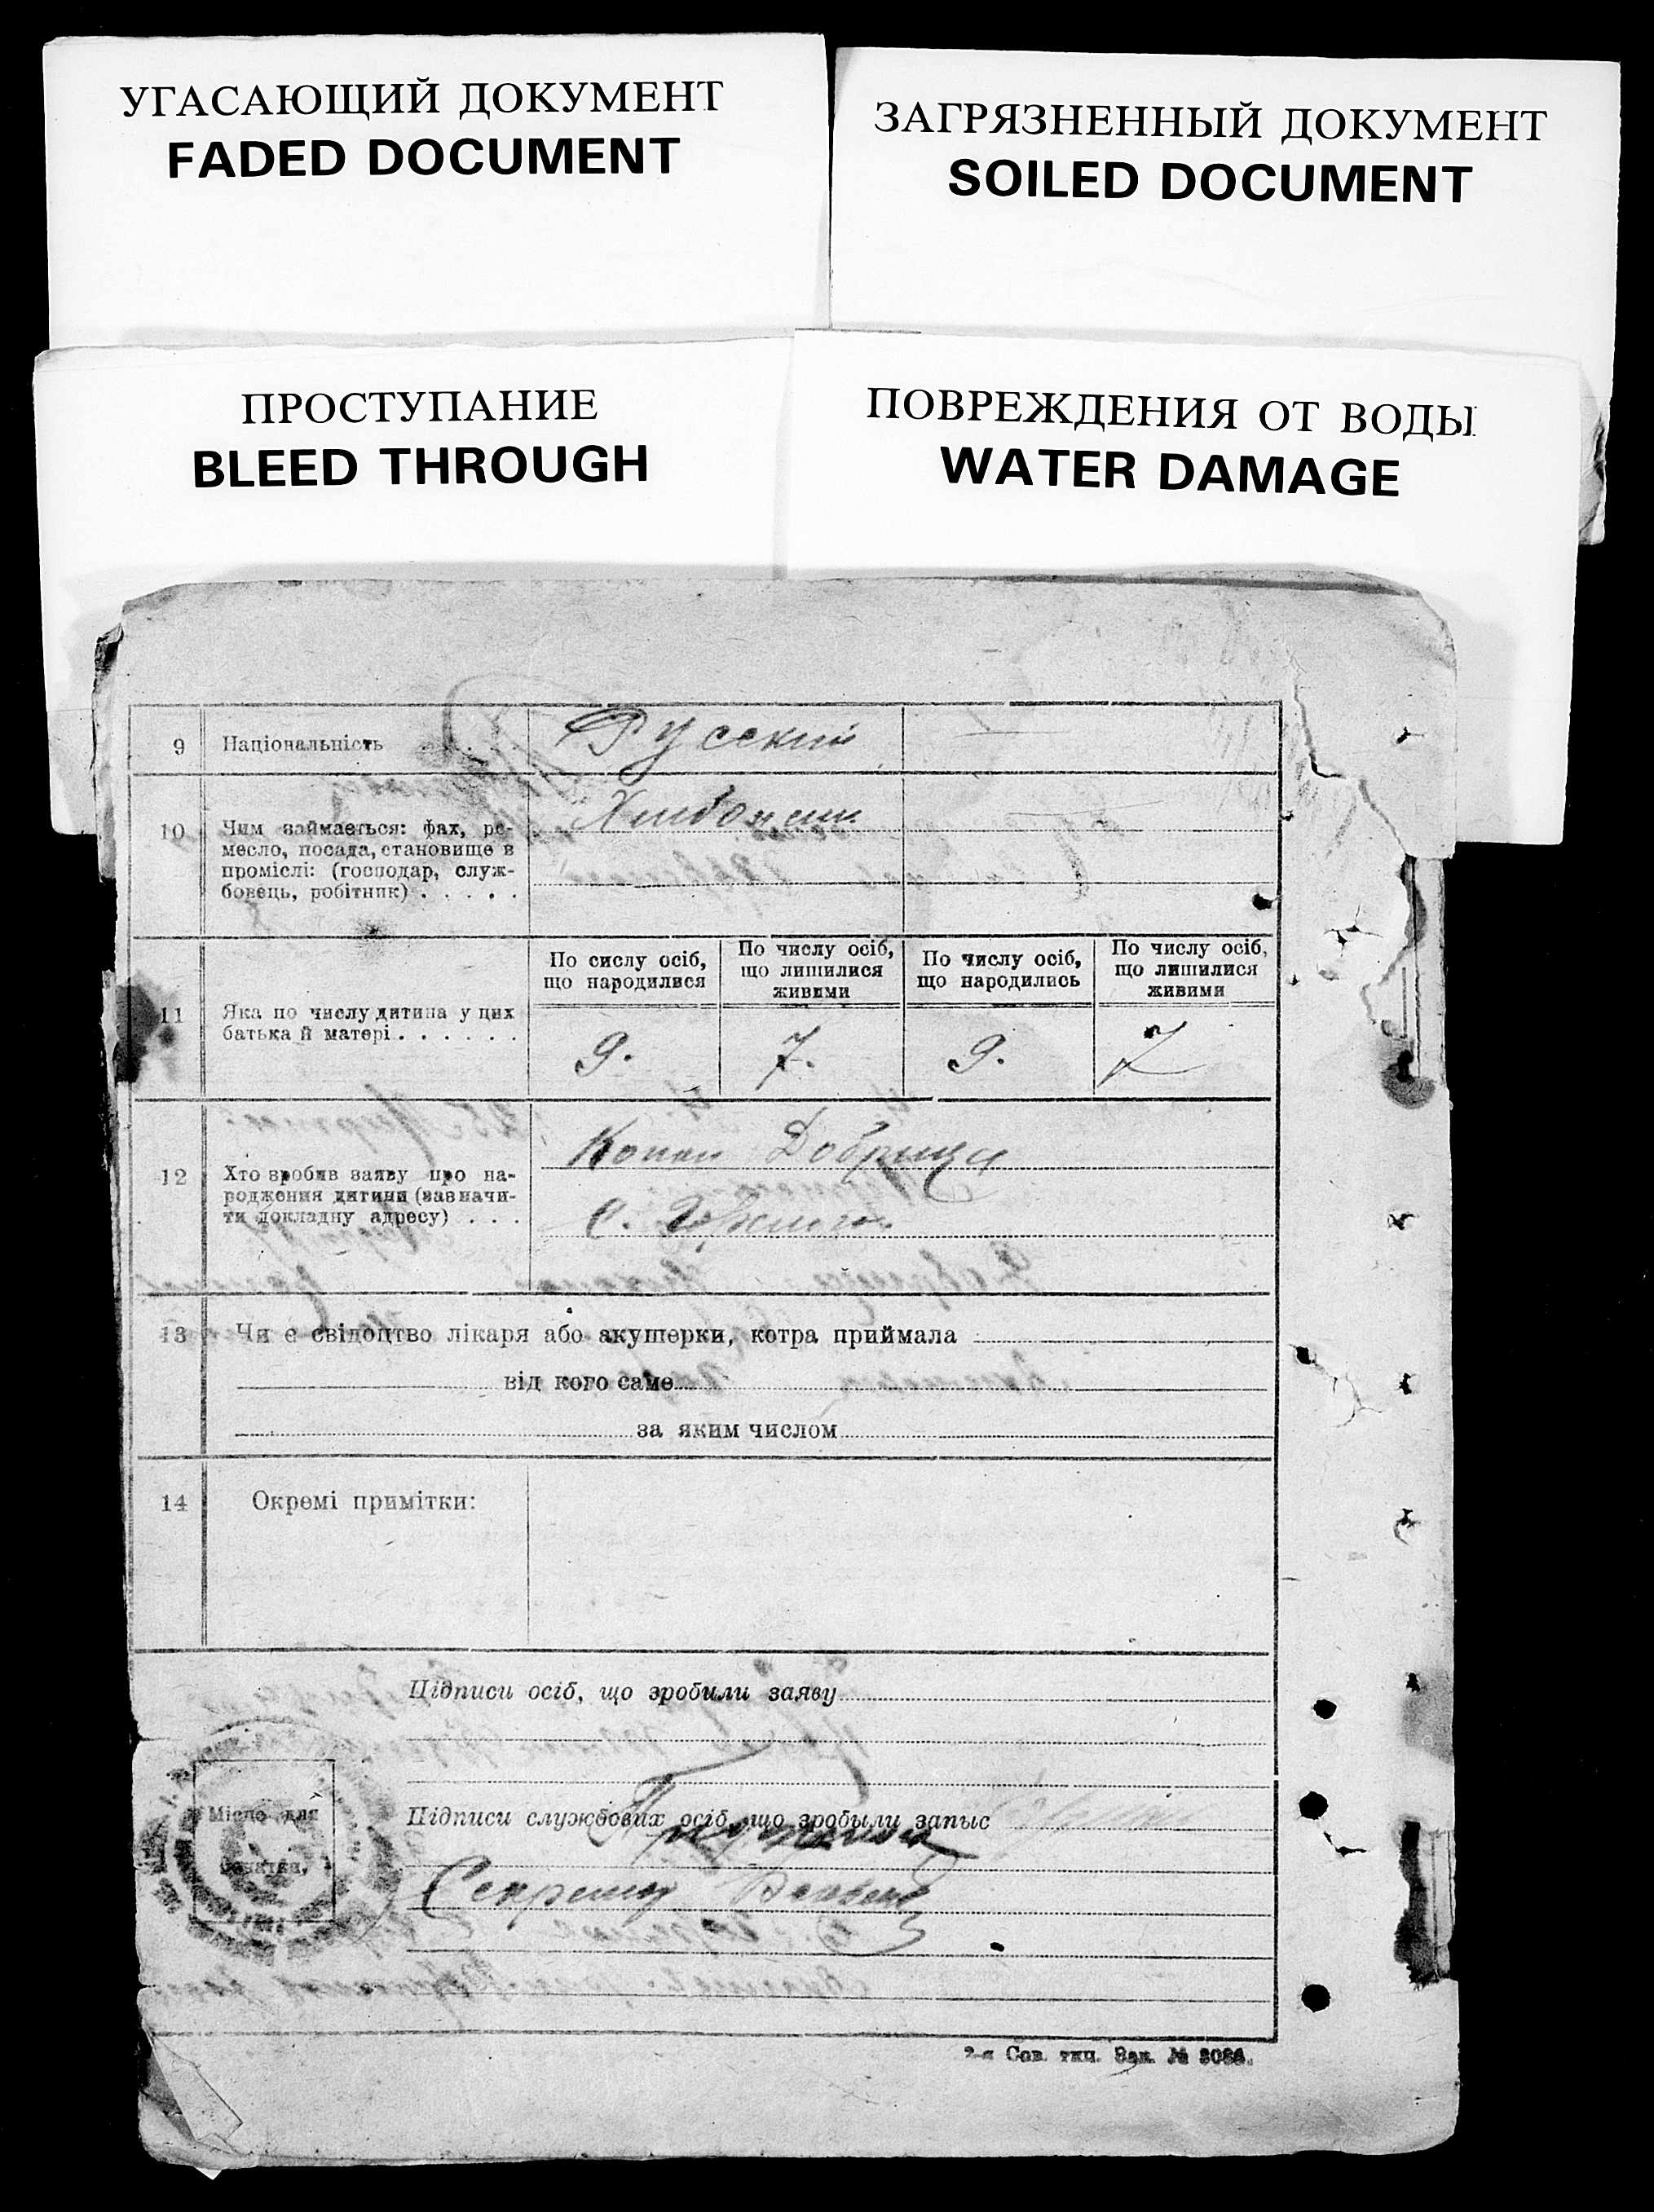 УГАСАЮЩИЙ ДОКУМЕНТ
FADED DOCUMENT
ЗАГРЯЗНЕННЫЙ ДОКУМЕНТ
SOILED DOCUMENT
ПРОСТУПАНИЕ
BLEED THROUGH
ПОВРЕЖДЕНИЯ ОТ ВОДЫ
WATER DAMAGE
9 Національність Русский
10 Чим займається: фах, ре-
месло, посада, становище в
проміслі: (господар, служ-
бовець, робітник) . . . . .
11 Яка по числу дитина у цих
батька й матері . . . . . .
По сислу осіб,
що народилися
По числу осіб,
що лишилися
живими
По числу осіб,
що народились
По числу осіб,
що лишилися
живими
9. 7. 9. 7
12 Хто зробив заяву про на-
родження дитини (зазначи-
ти докладну адресу) . . .
Добрица
С.
13 Чи є свідоцтво лікаря або акушерки, котра приймала
від кого саме
за яким числом
14 Окремі примітки:
Підписи осіб, що зробили заяву
Підписи службових осіб, що зробыли запыс
Місце для
печатки.
Секретар
2-я Сов. тип. Зак. № 3086.